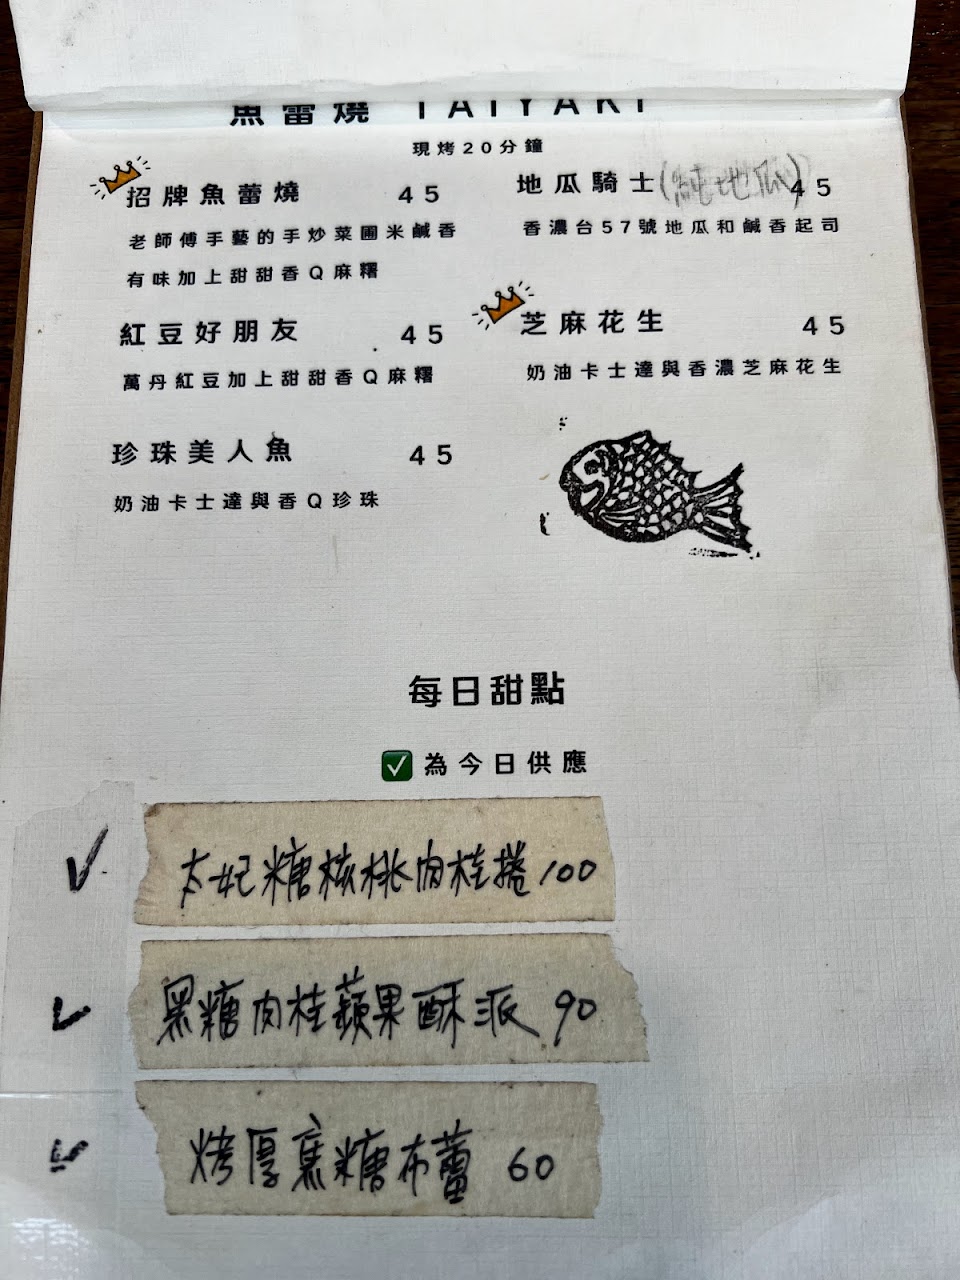 魚蕾燒 TAIYAKI
現烤20分鐘
招牌魚蕾燒 45
老師傅手藝的手炒菜圃米鹹香
有味加上甜甜香Q麻糬
紅豆好朋友 45
萬丹紅豆加上甜甜香Q麻糬
珍珠美人魚 45
奶油卡士達與香Q珍珠
地瓜騎士(純地瓜) 45
香濃台57號地瓜和鹹香起司
芝麻花生 45
奶油卡士達與香濃芝麻花生
每日甜點
✅為今日供應
太妃糖核桃肉桂捲 100
黑糖肉桂蘋果酥派 90
烤厚焦糖布蕾 60